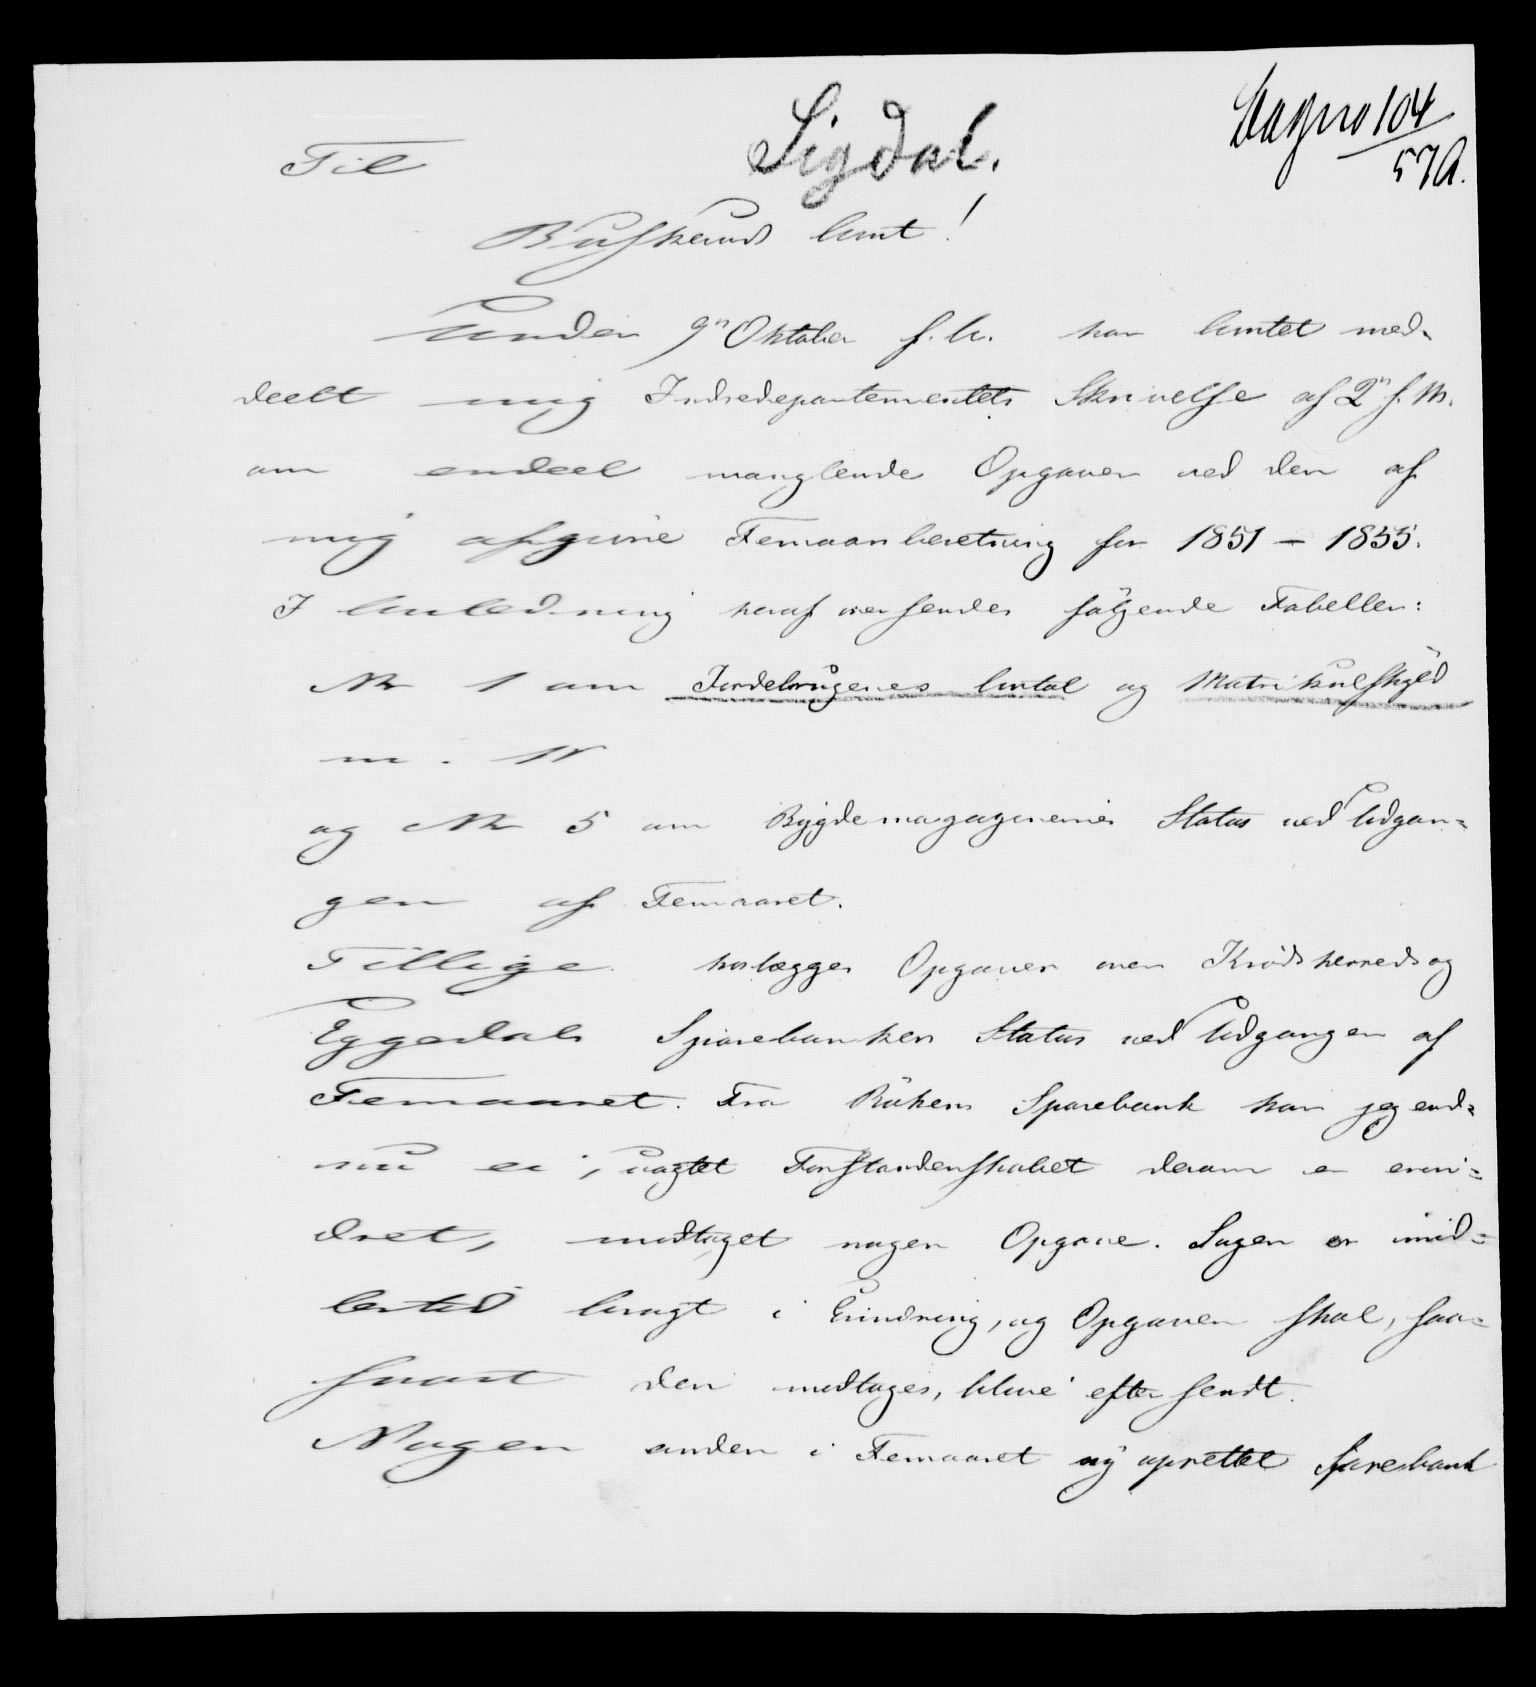 Sagno 104
57A.
Sigdal.
Til
Buskerud Amt!
Under 9n Oktober f. A. har Amtet med-
deelt mig Indredepartementets Skrivelse af 2n s. M.
om endeel manglende Opgaver ved den af
mig afgivne Femaarsberetning for 1851 – 1855.
I Anledning heraf oversendes følgende Tabeller:
No 1 om Jordebrugenes Antal og Matrikulskyld
m. V
og No 5 om Bygdemagazinernes Status ved Udgan-
gen af Femaaret.
Tillige hoslægges Opgaver over Krødsherreds og
Eggedals Sparebankers Status ved Udgangen af
Femaaret. Fra Røkens Sparebank har jeg end-
nu ei, uagtet Forstanderskabet derom er erin-
dret, modtaget nogen Opgave. Sagen er imid-
lertid bragt i Erindring, og Opgaven skal, saa-
snart den modtages, blive eftersendt.
Nogen anden i Femaaret ny oprettet Sparebank